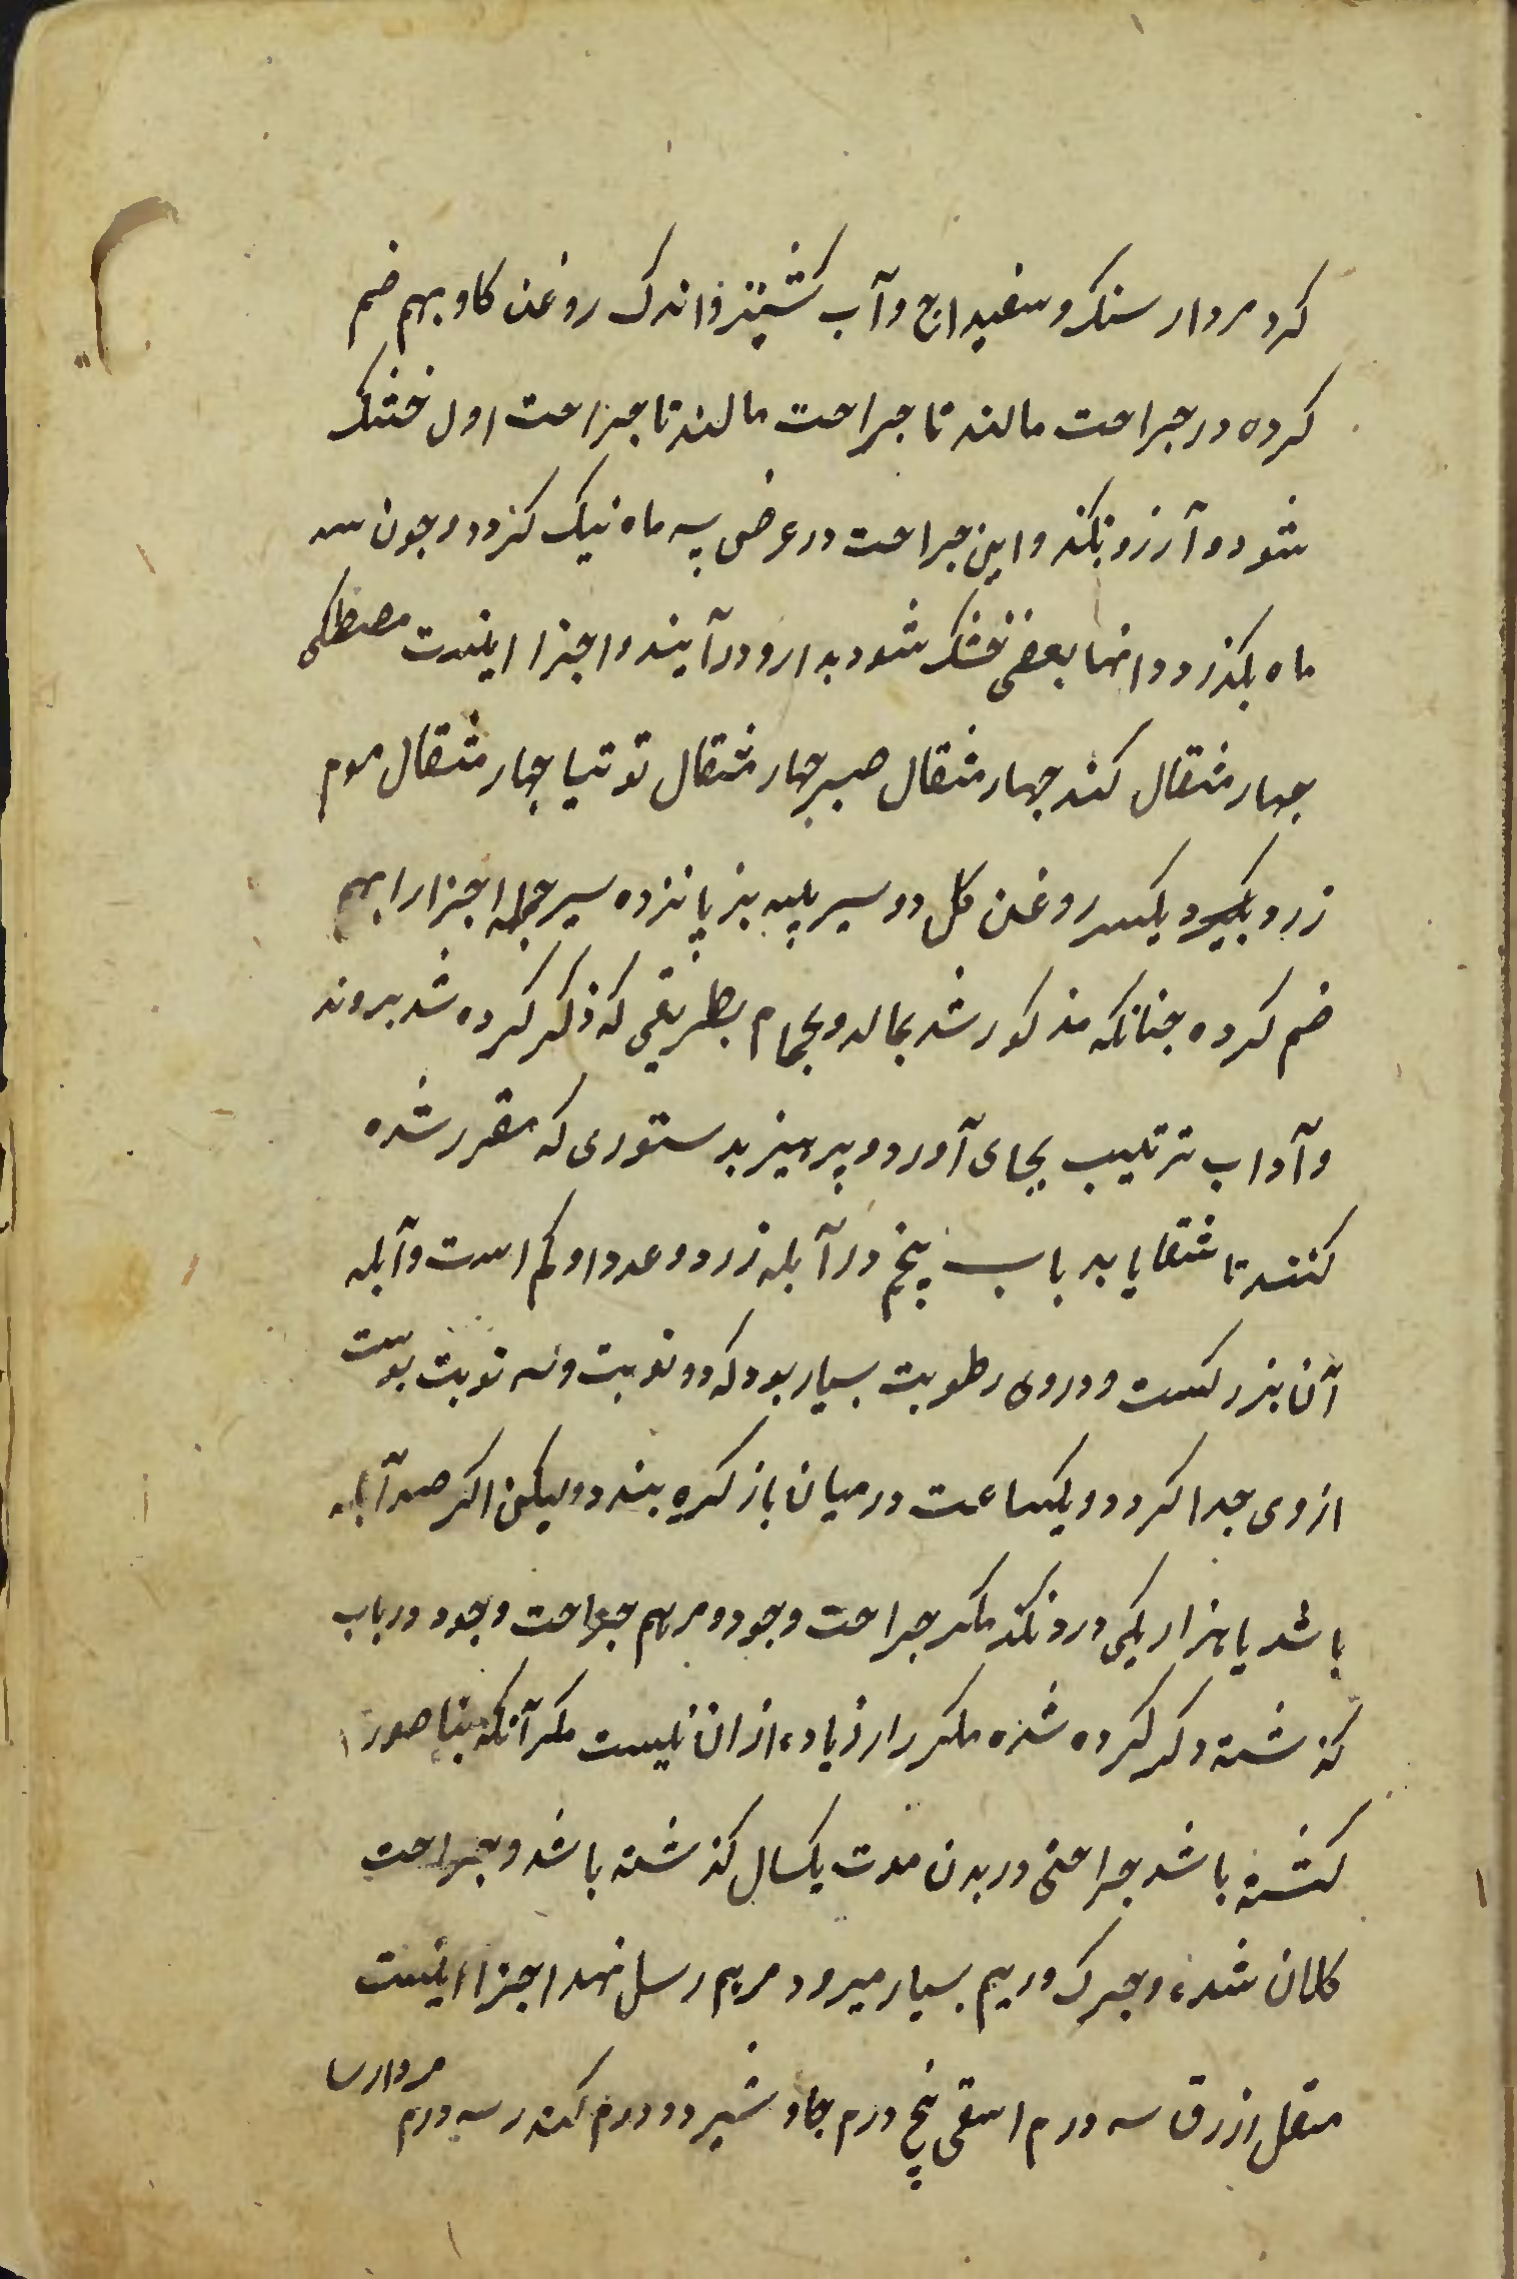 کرد مردار سنک و سفیداج و آب کشنیز و اندک روغن کاو بهم ضم
کرده در جراحت مالند تا جراحت مالند تا جراحت اول خشک
شود و آرزو نکند و این جراحت در عرض سه ماه نیک کردد و چون سه
ماه بکذرد و انها بعضی خشک شود بدارو درآیند و اجزا اینست مصطکی
چهار مثقال کندر چهار مثقال صبر چهار مثقال توتیا چهار مثقال موم
زرد یکسیر روغن کل دو سیر پیه بز پانزده سیر جمله اجزا را بهم
ضم کرده چنانکه مذکور شد بمالد و بحمام بطریقی که ذکر کرده شد بروند
و آداب ترتیب بجای آورد و پرهیز بدستوری که مقرر شده
کنند تا شفا یابد باب پنجم در آبله زرد و عدد او کم است و آبله
آن بزرکست و در وی رطوبت بسیار بود که دو نوبت و سه نوبت پوست
از وی جدا کردد و یکساعت در میان باز کره بندد ولیکن اکر صد آبله
باشد یا هزار یکی درد نکند مکر جراحت وجود و مرهم جراحت وجود در باب
کذشته ذکر کرده شده مکرر از زیاده ازان نیست مکر آنکه بناصور
کشته باشد جراحتی در بدن مدت یکسال کذشته باشد و جراحت
کلان شده و چرک و ریم بسیار میرود مرهم رسل نهد اجزا اینست
مقل ازرق سه درم اشق پنج درم جاوشیر دو درم کندر سه درم مردارسا